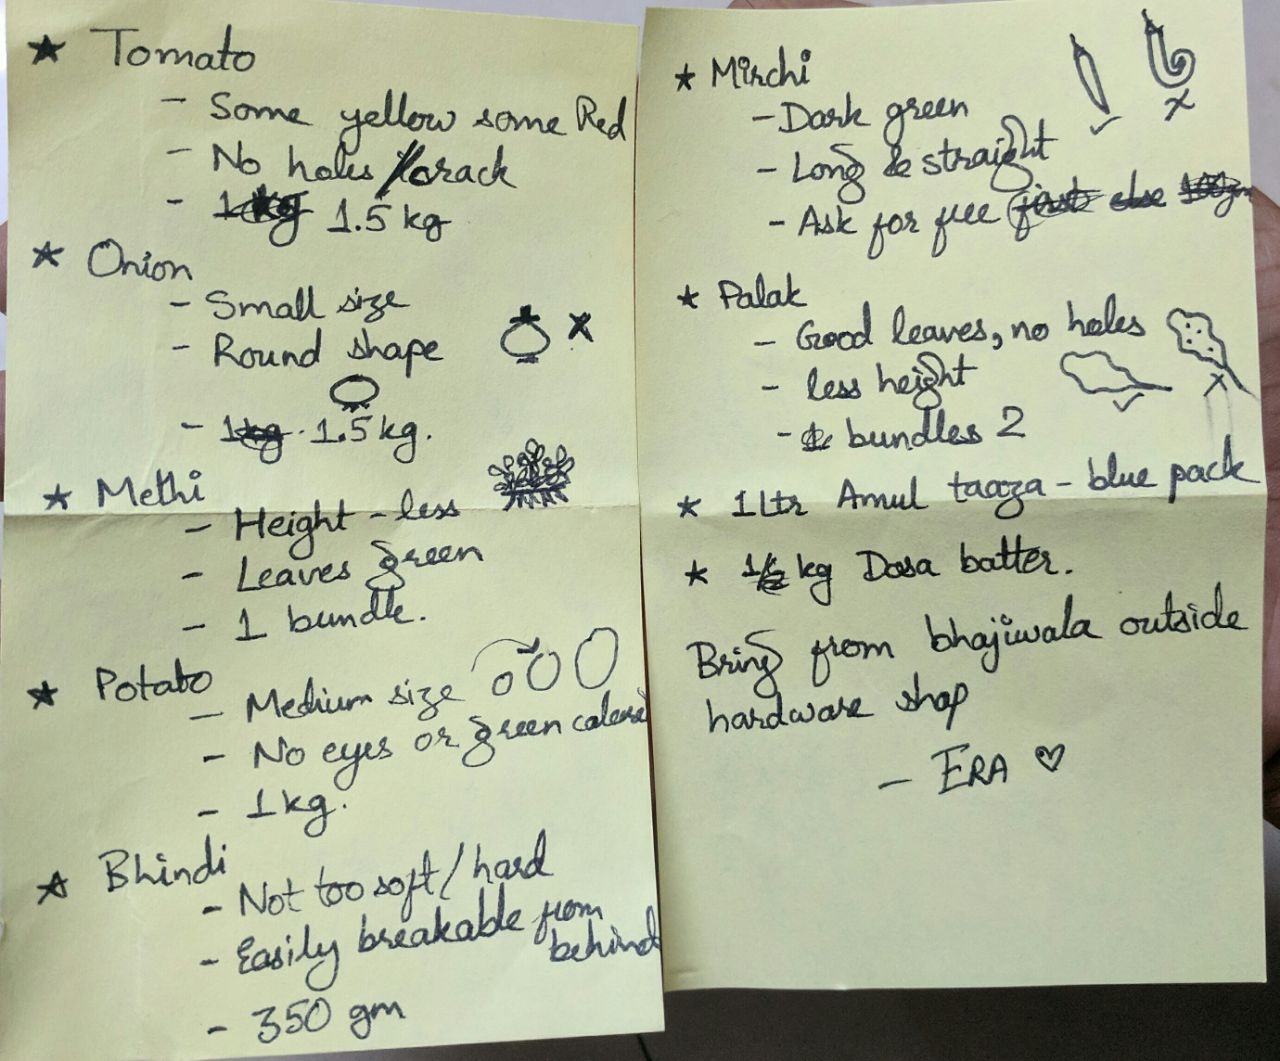 ★ Tomato
- Some yellow some Red
- No holes / crack
- 1 kg 1.5 kg
★ Onion
- Small size
- Round shape
- 1kg. 1.5 kg.
★ Methi
- Height - less
- Leaves green
- 1 bundle.
★ Potato
- Medium size
- No eyes or green colored
- 1 kg.
★ Bhindi
- Not too soft / hard
- Easily breakable from
behind
- 350 gm
★ Mirchi
- Dark green
- Long & straight
- Ask for free first else 100gm
★ Palak
- Good leaves, no holes
- less height
- bundles 2
★ 1 Ltr Amul taaza - blue pack
★ 1 kg Dosa batter.
Bring from bhajiwala outside
hardware shop
- ERA ♡